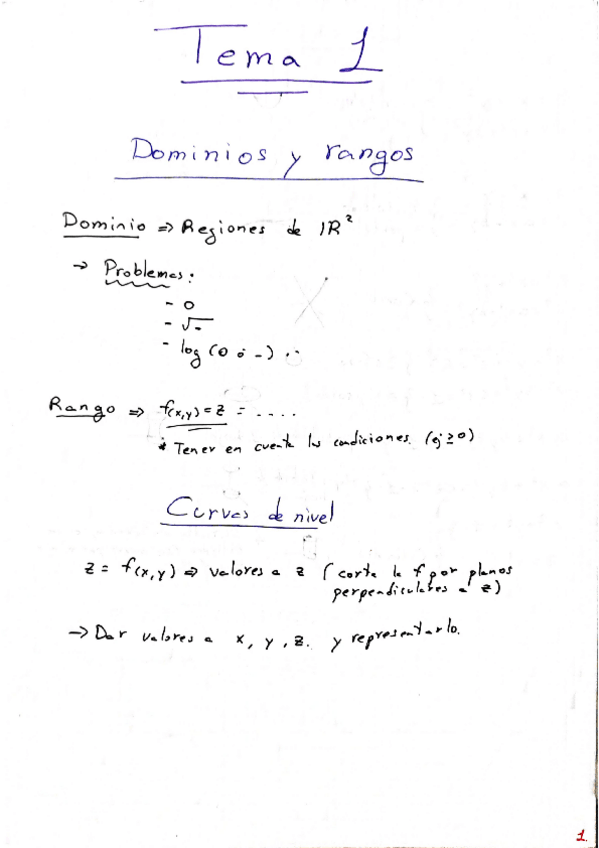 Tema 1
Dominios y rangos
Dominio => Regiones de IR²
→ Problemas:
- 0
- √-
- log (0 ó -) ..
Rango => f(x,y) = z = ....
* Tener en cuenta las condiciones. (ej ≥0)
Curvas de nivel
z = f(x,y) => valores a z (corta la f por planos
perpendiculares a z)
→ Dar valores a x, y, z. y representarlo.
1.